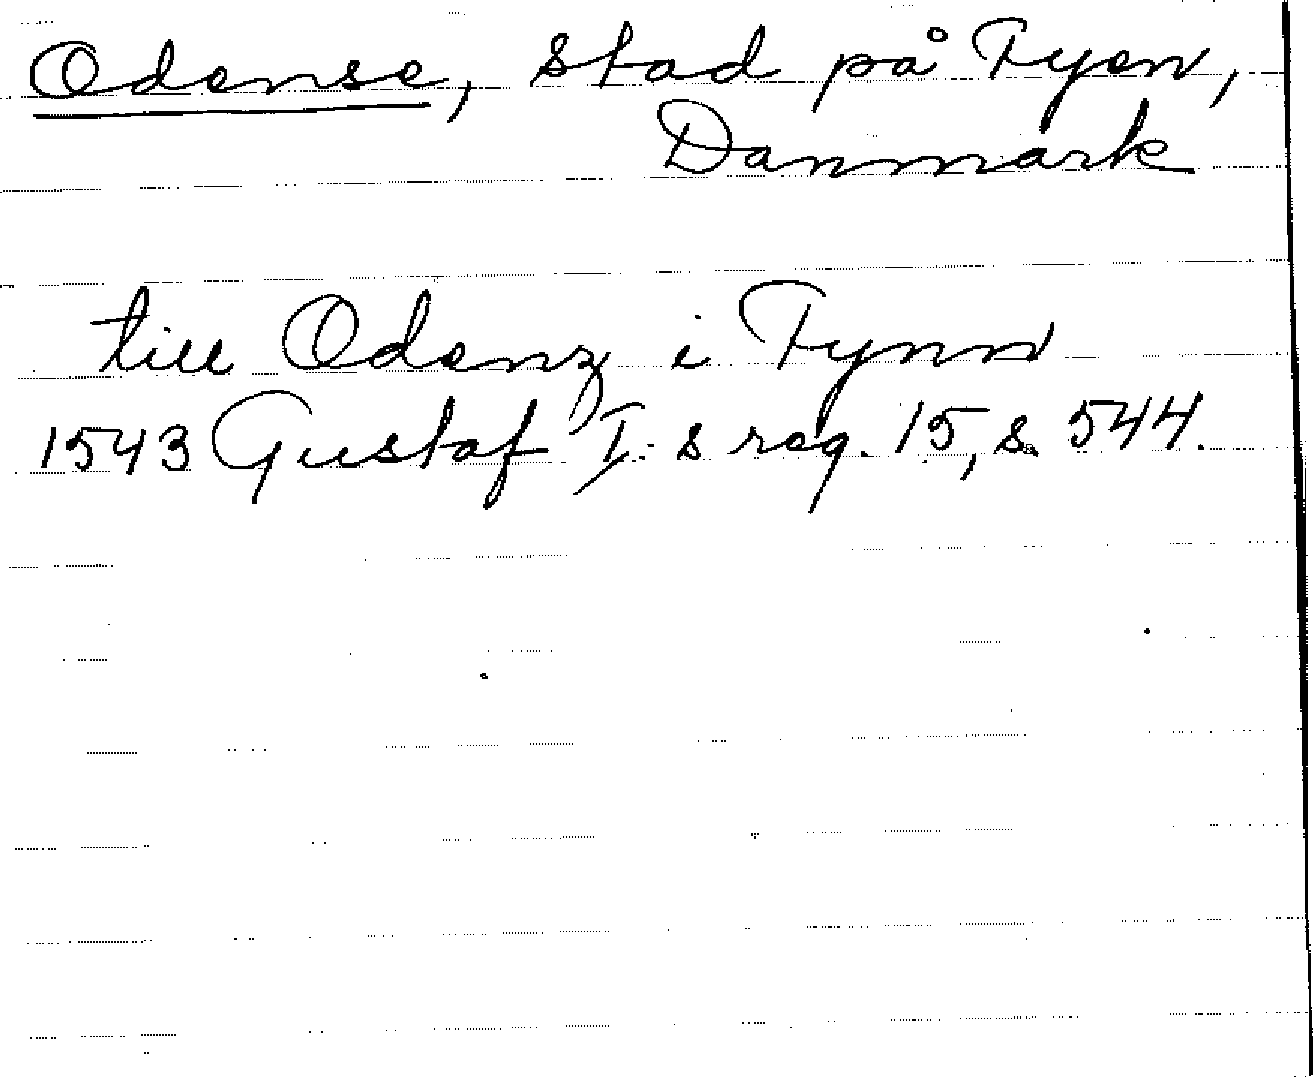 Odense, stad på Fyen,
Danmark
till Odenz i Fynn
1543 Gustaf I:s reg. 15, s. 544.